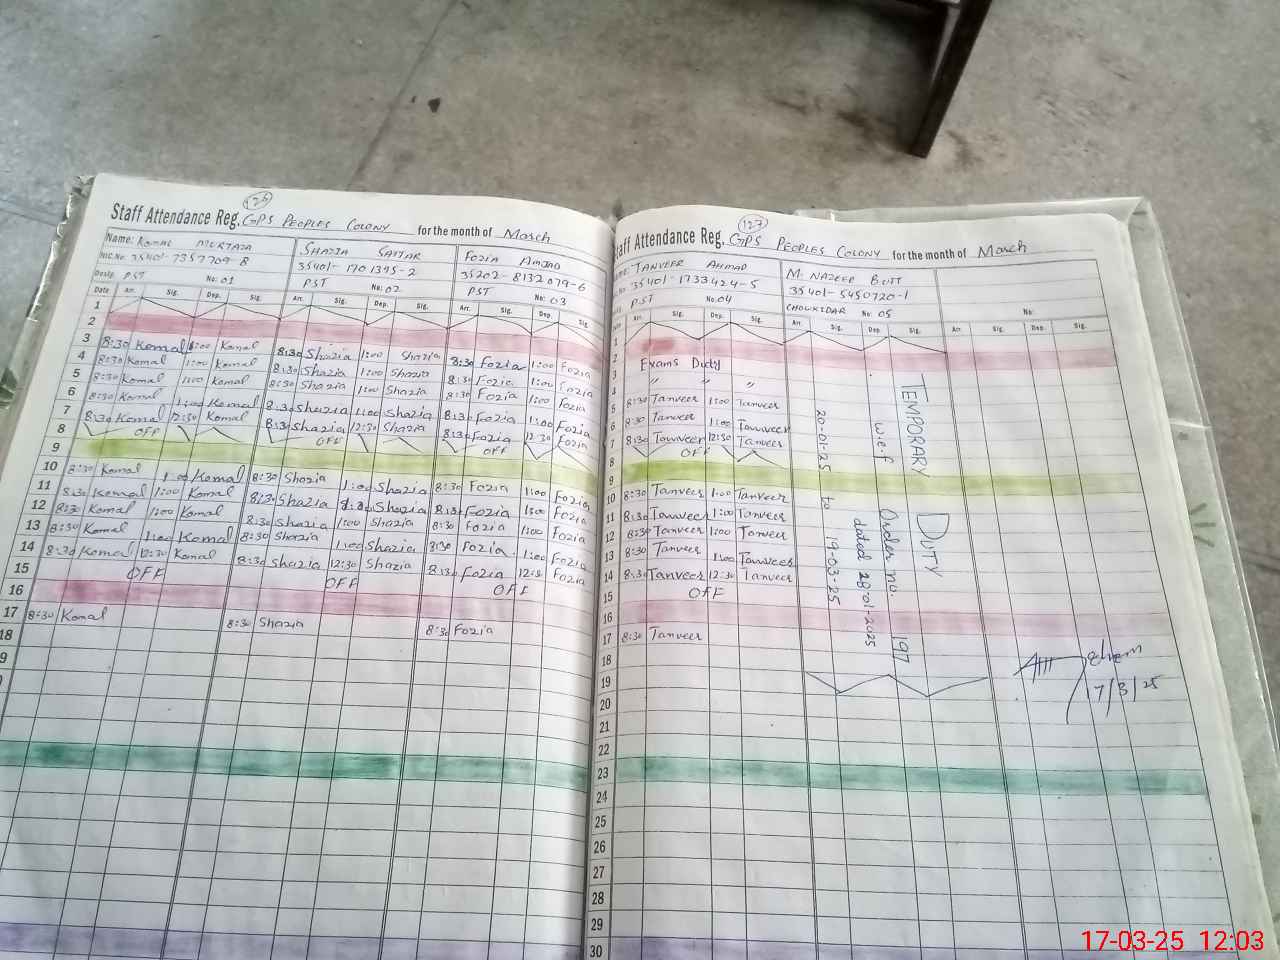 126
Staff Attendance Reg. GPS PEOPLES COLONY for the month of March
Name: KOMAL MURTAZA SHAZIA SATTAR FOZIA AMJAD
NIC.No. 35401-7357709-8 35401-1701395-2 35202-8132079-6
Desig. PST No: 01 PST No: 02 PST No: 03
Date Arr. Sig. Dep. Sig. Arr. Sig. Dep. Sig. Arr. Sig. Dep. Sig.
1
2
3 8:30 Komal 1:00 Komal 8:30 Shazia 1:00 Shazia 8:30 Fozia 1:00 Fozia
4 8:30 Komal 1:00 Komal 8:30 Shazia 1:00 Shazia 8:30 Fozia 1:00 Fozia
5 8:30 Komal 1:00 Komal 8:30 Shazia 1:00 Shazia 8:30 Fozia 1:00 Fozia
6 8:30 Komal 1:00 Komal 8:30 Shazia 1:00 Shazia 8:30 Fozia 1:00 Fozia
7 8:30 Komal 12:30 Komal 8:30 Shazia 12:30 Shazia 8:30 Fozia 12:30 Fozia
8 OFF OFF OFF
9
10 8:30 Komal 1:00 Komal 8:30 Shazia 1:00 Shazia 8:30 Fozia 1:00 Fozia
11 8:30 Komal 1:00 Komal 8:30 Shazia Shazia 8:30 Fozia 1:00 Fozia
12 8:30 Komal 1:00 Komal 8:30 Shazia 1:00 Shazia 8:30 Fozia 1:00 Fozia
13 8:30 Komal 1:00 Komal 8:30 Shazia 1:00 Shazia 8:30 Fozia 1:00 Fozia
14 8:30 Komal 12:30 Komal 8:30 Shazia 12:30 Shazia 8:30 Fozia 12:30 Fozia
15 OFF OFF OFF
16
17 8:30 Komal 8:30 Shazia 8:30 Fozia
18
9
127
Staff Attendance Reg. GPS PEOPLES COLONY for the month of March
TANVEER AHMAD M. NAZEER BUTT
35401-1733424-5 35401-5450720-1
PST No. 04 CHOWKIDAR No: 05 No:
Arr. Sig. Dep. Sig. Arr. Sig. Dep. Sig. Arr. Sig. Dep. Sig.
1
2
3 Exams Duty
4 " " "
5 8:30 Tanveer 1:00 Tanveer
6 8:30 Tanveer 1:00 Tanveer
7 8:30 Tanveer 12:30 Tanveer
8 OFF
9
10 8:30 Tanveer 1:00 Tanveer
11 8:30 Tanveer 1:00 Tanveer
12 8:30 Tanveer 1:00 Tanveer
13 8:30 Tanveer 1:00 Tanveer
14 8:30 Tanveer 12:30 Tanveer
15 OFF
16
17 8:30 Tanveer
18
19
20
21
22
23
24
25
26
27
28
29
30
TEMPORARY DUTY
w.e.f Order no. 197
20-01-25 to 19-03-25
dated 28-01-2025
17/3/25
17-03-25 12:03